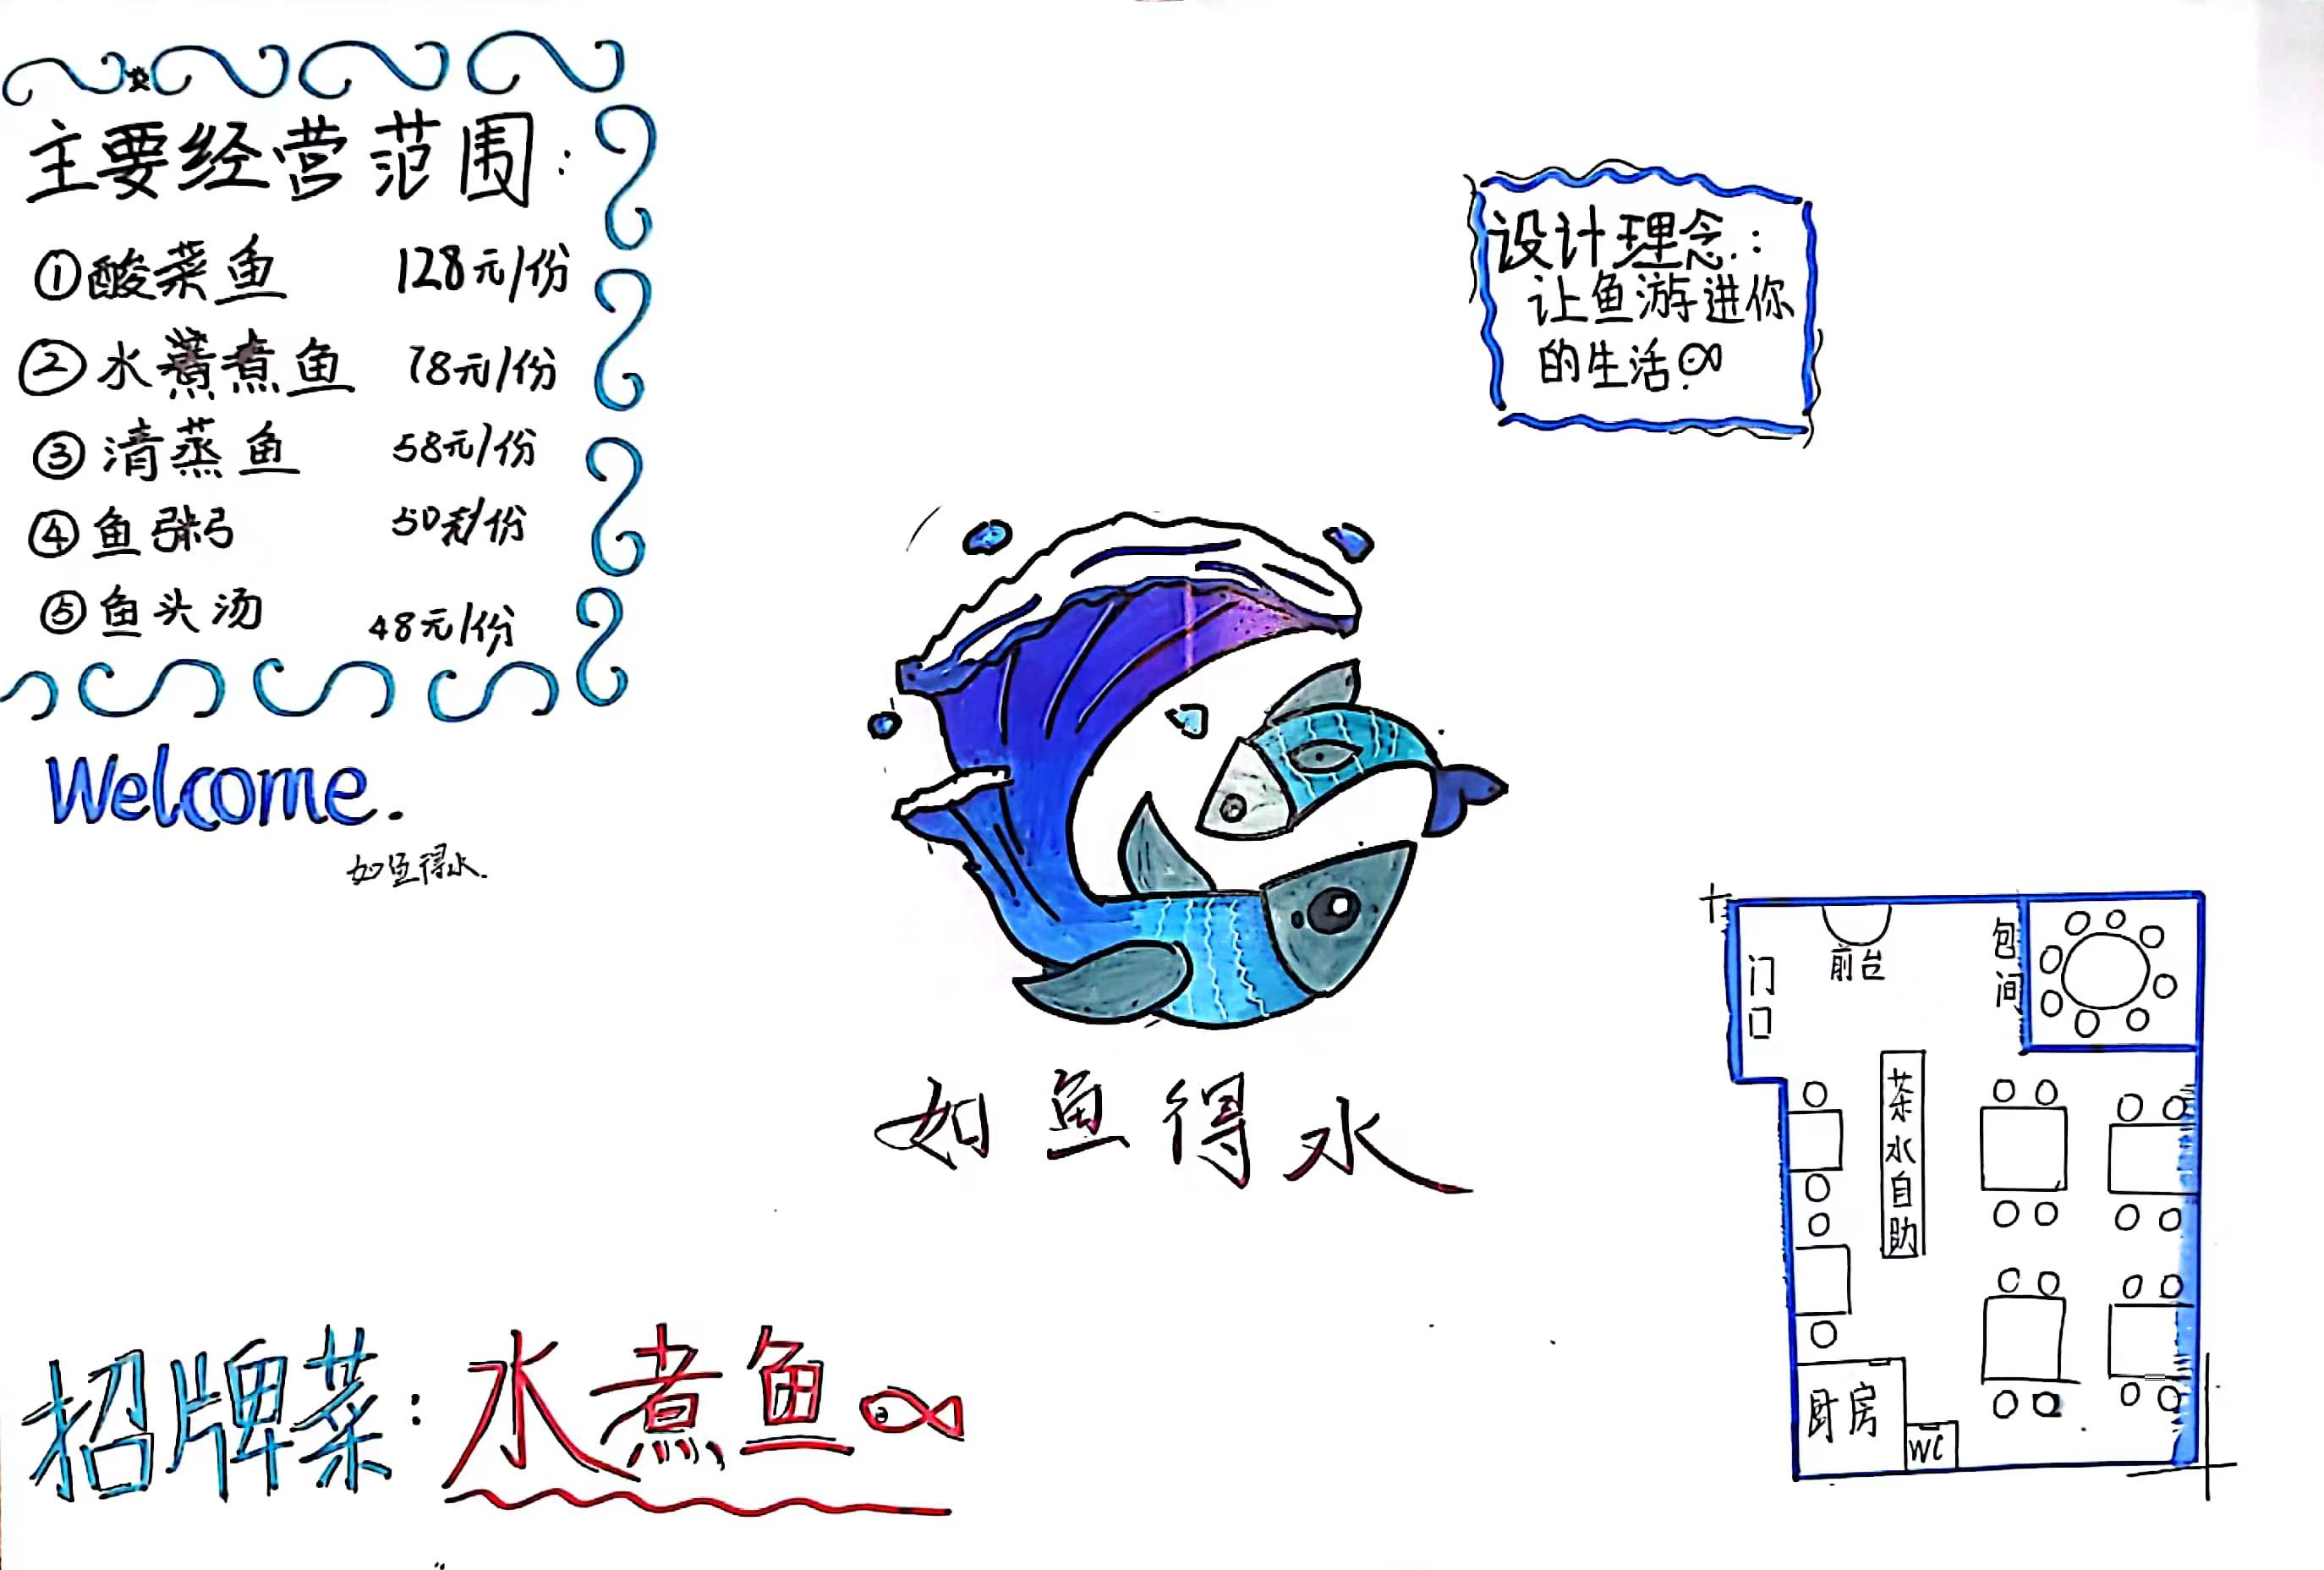 主要经营范围:
①酸菜鱼 128元/份
②水煮鱼 78元/份
③清蒸鱼 58元/份
④鱼粥 50元/份
⑤鱼头汤 48元/份
Welcome.
如鱼得水.
设计理念:
让鱼游进你
的生活.
如鱼得水
招牌菜:水煮鱼
门口
前台
包间
茶水自助
厨房
WC